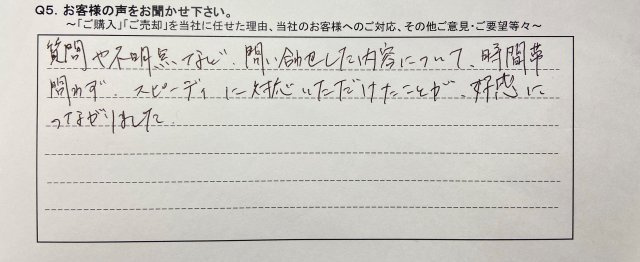 Q5. お客様の声をお聞かせ下さい。
～「ご購入」「ご売却」を当社に任せた理由、当社のお客様へのご対応、その他ご意見・ご要望等々～
質問や不明点など、問い合わせした内容について、時間帯
問わず、スピーディに対応いただけたことが、好感に
つながりました。